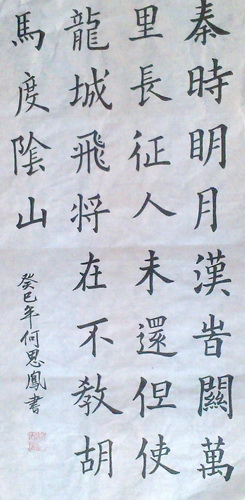 秦時明月漢旹關萬
里長征人未還但使
龍城飛将在不教胡
馬度陰山
癸巳年何思鳳書